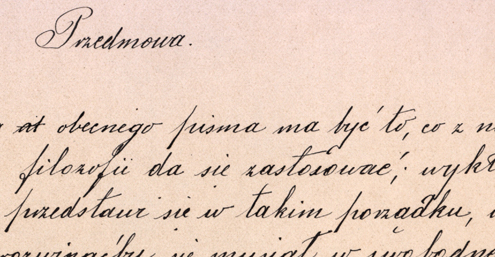 Przedmowa.
obecnego pisma ma być to, co z
filozofii da się zastosować; wykł
przedstawi się w takim porządku,
rozwinąćby się musiał w swobodne